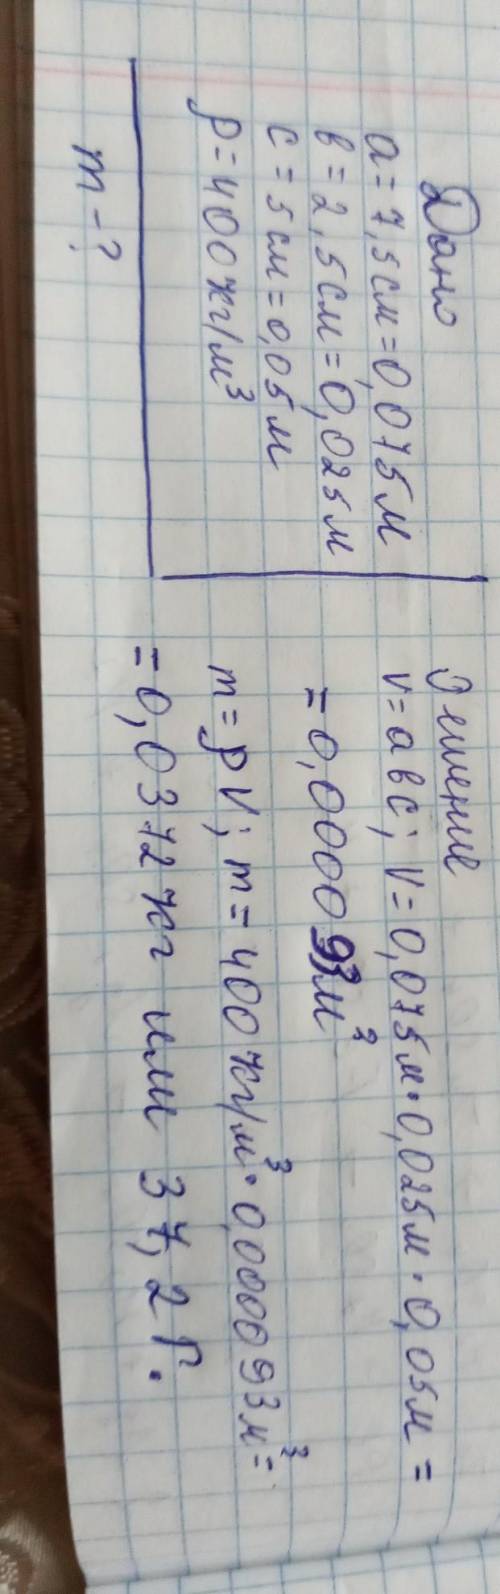 Дано
a = 7,5см = 0,075м
в = 2,5см = 0,025м
c = 5см = 0,05м
ρ = 400кг/м³
m - ?
Решение
v = aвc; V = 0,075м · 0,025м · 0,05м =
= 0,000093м³
m = ρV; m = 400кг/м³ · 0,000093м³ =
= 0,0372кг или 37,2г.